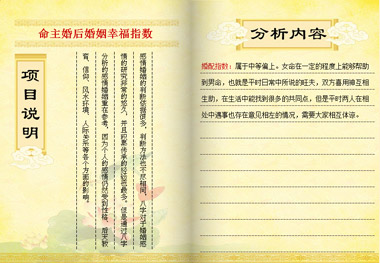 命主婚后婚姻幸福指数
项目说明
感情婚姻的判断依据很多，判断方法也不尽相同，八字对于婚姻感
情的研究非常的悠久，并且积累传承的经验也最多。但是通过八字
分析的感情婚姻重在参考，因为个人的感情仍然受到性格、后天教
育、信仰、风水环境、人际关系等各个方面的影响。
分析内容
婚配指数：属于中等偏上。女命在一定的程度上能够帮助
到男命，也就是平时日常中所说的旺夫，双方喜用神互相
生助，在生活中能找到很多的共同点，但是平时两人在相
处中遇事也存在意见相左的情况，需要大家相互体谅。